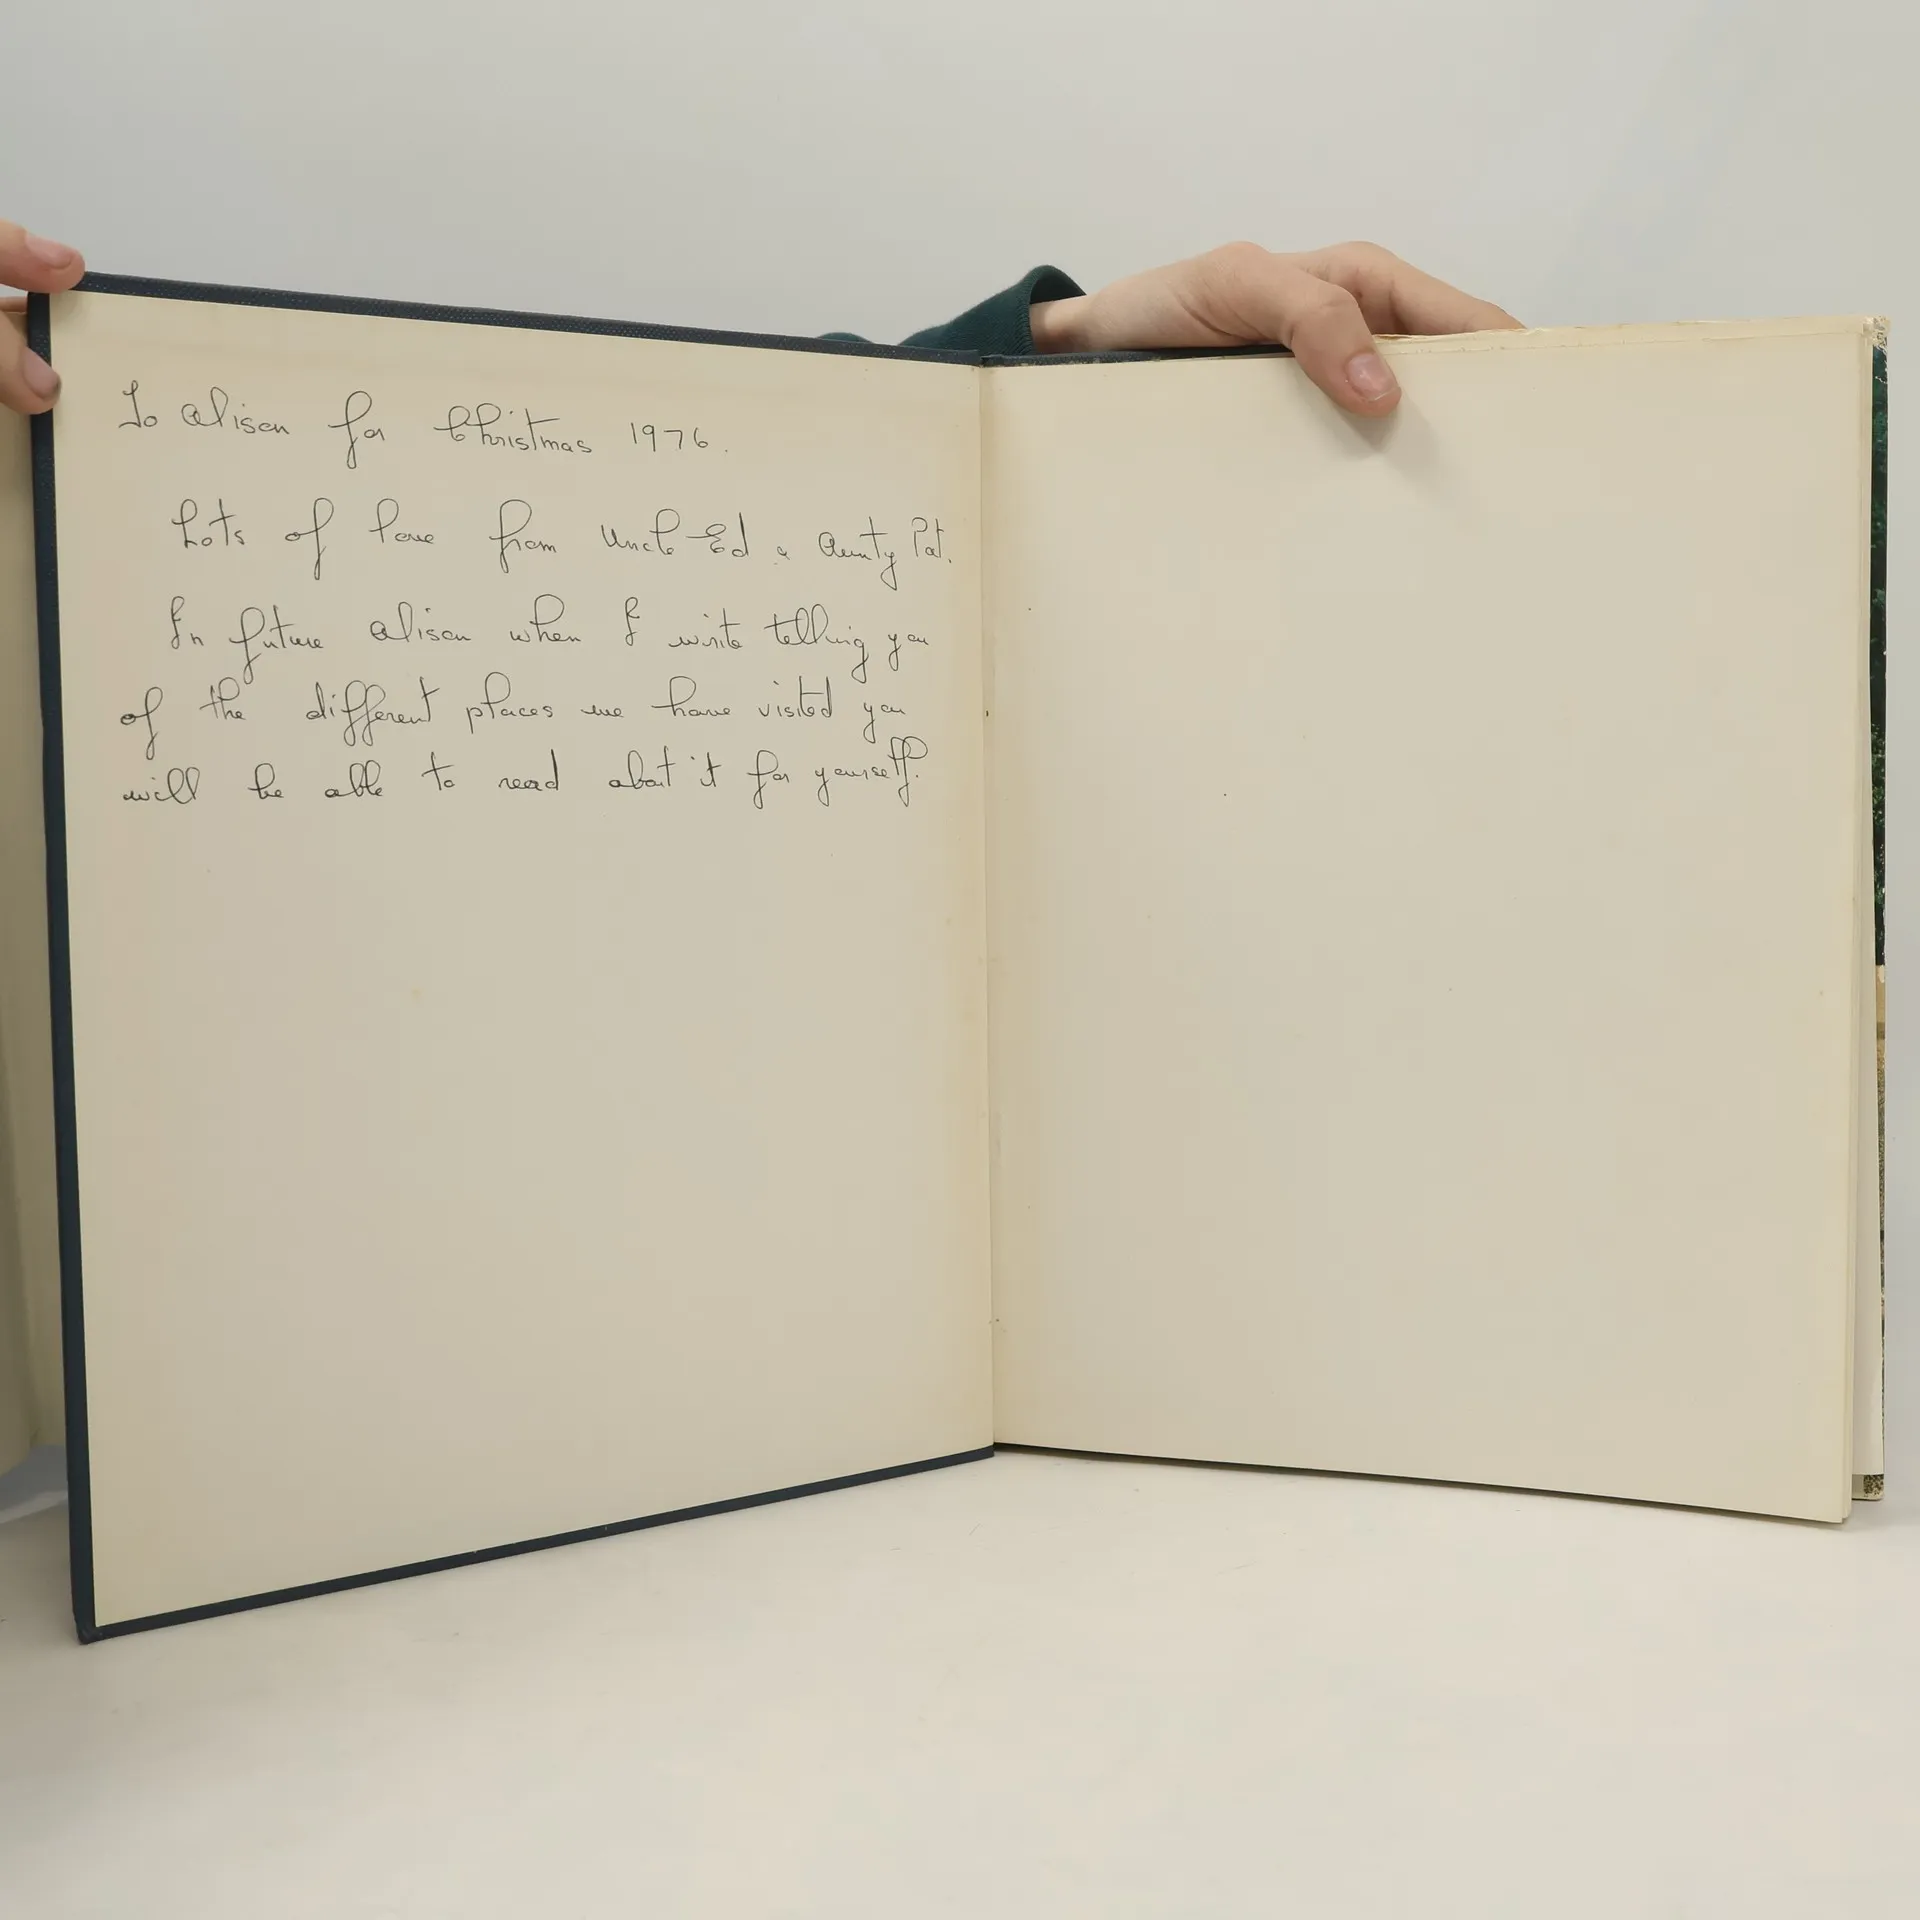 To Alison for Christmas 1976.
Lots of love from Uncle Ed & Aunty Pat.
In future Alison when I write telling you
of the different places we have visited you
will be able to read about it for yourself.